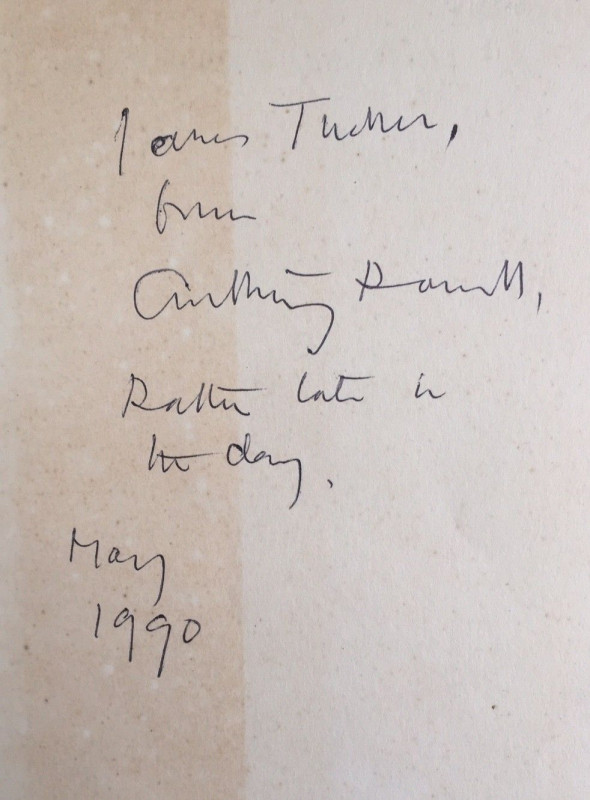 James Tucker,
from
Anthony Powell,
Rather late in
the day,
May
1990